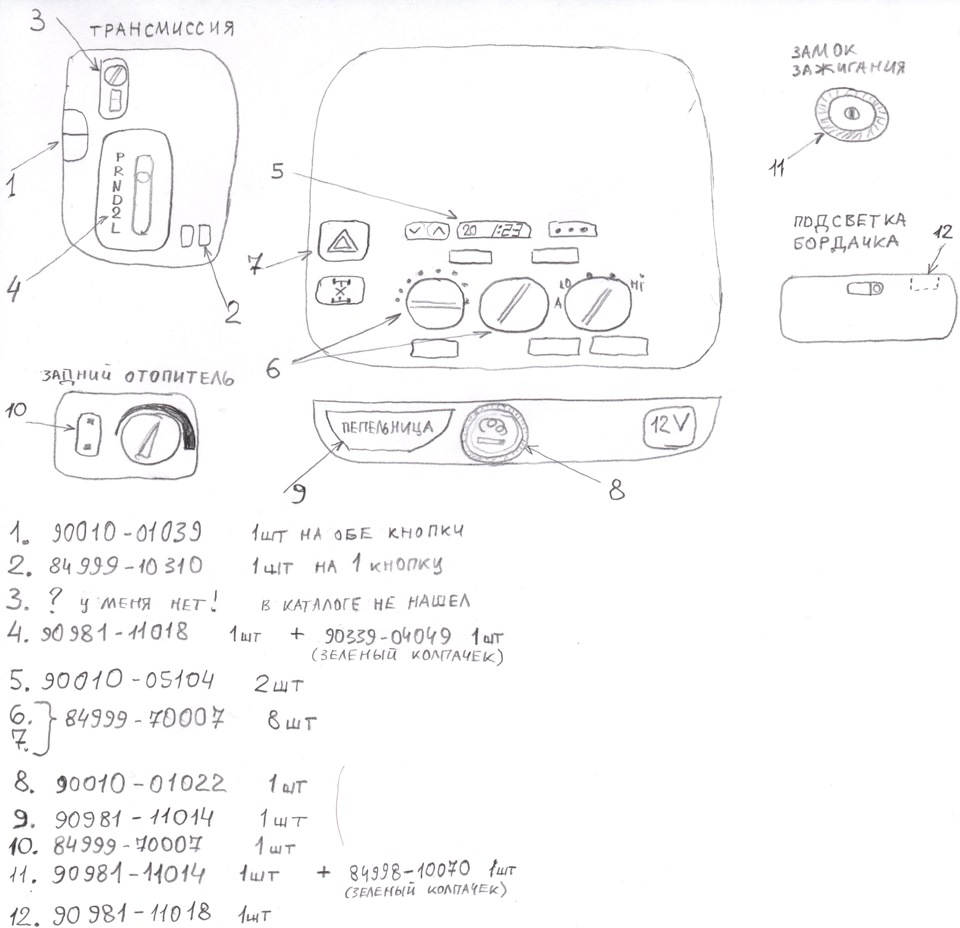 3 ТРАНСМИССИЯ
1
P
R
N
D
2
L
4
2
5
20 1:23
7
LO
A
Hi
6
ЗАМОК
ЗАЖИГАНИЯ
11
ПОДСВЕТКА
БОРДАЧКА
12
ЗАДНИЙ ОТОПИТЕЛЬ
10
ПЕПЕЛЬНИЦА
12V
9
8
1. 90010-01039 1шт НА ОБЕ КНОПКИ
2. 84999-10310 1шт НА 1 КНОПКУ
3. ? У МЕНЯ НЕТ! В КАТАЛОГЕ НЕ НАШЕЛ
4. 90981-11018 1шт + 90339-04049 1шт
(ЗЕЛЕНЫЙ КОЛПАЧЕК)
5. 90010-05104 2шт
6.
7. } 84999-70007 8шт
8. 90010-01022 1шт
9. 90981-11014 1шт
10. 84999-70007 1шт
11. 90981-11014 1шт + 84998-10070 1шт
(ЗЕЛЕНЫЙ КОЛПАЧЕК)
12. 90981-11018 1шт